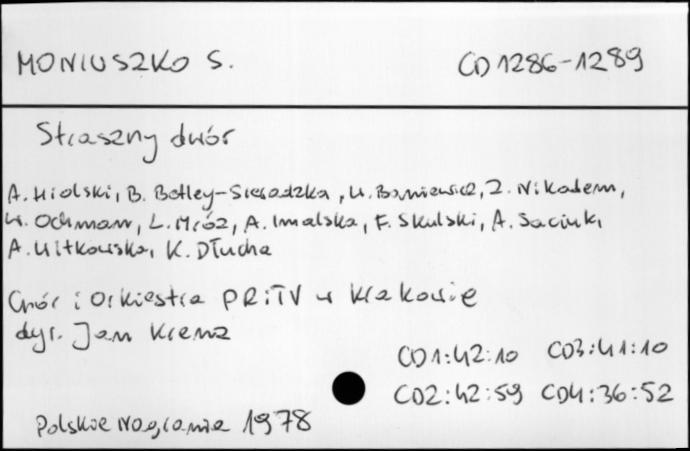 MONIUSZKO S. CD 1286-1289
Straszny dwór
A. Hiolski, B. Betley-Sieradzka, W. Baniewicz, Z. Nikodem,
W. Ochman, L. Mróz, A. Imalska, F. Skulski, A. Saciuk,
A. Witkowska, K. Dłucha
Chór i Orkiestra PRiTV w Krakowie
dyr. Jan Krenz
CD1:42:10 CD3:41:10
CD2:42:59 CD4:36:52
Polskie Nagrania 1978